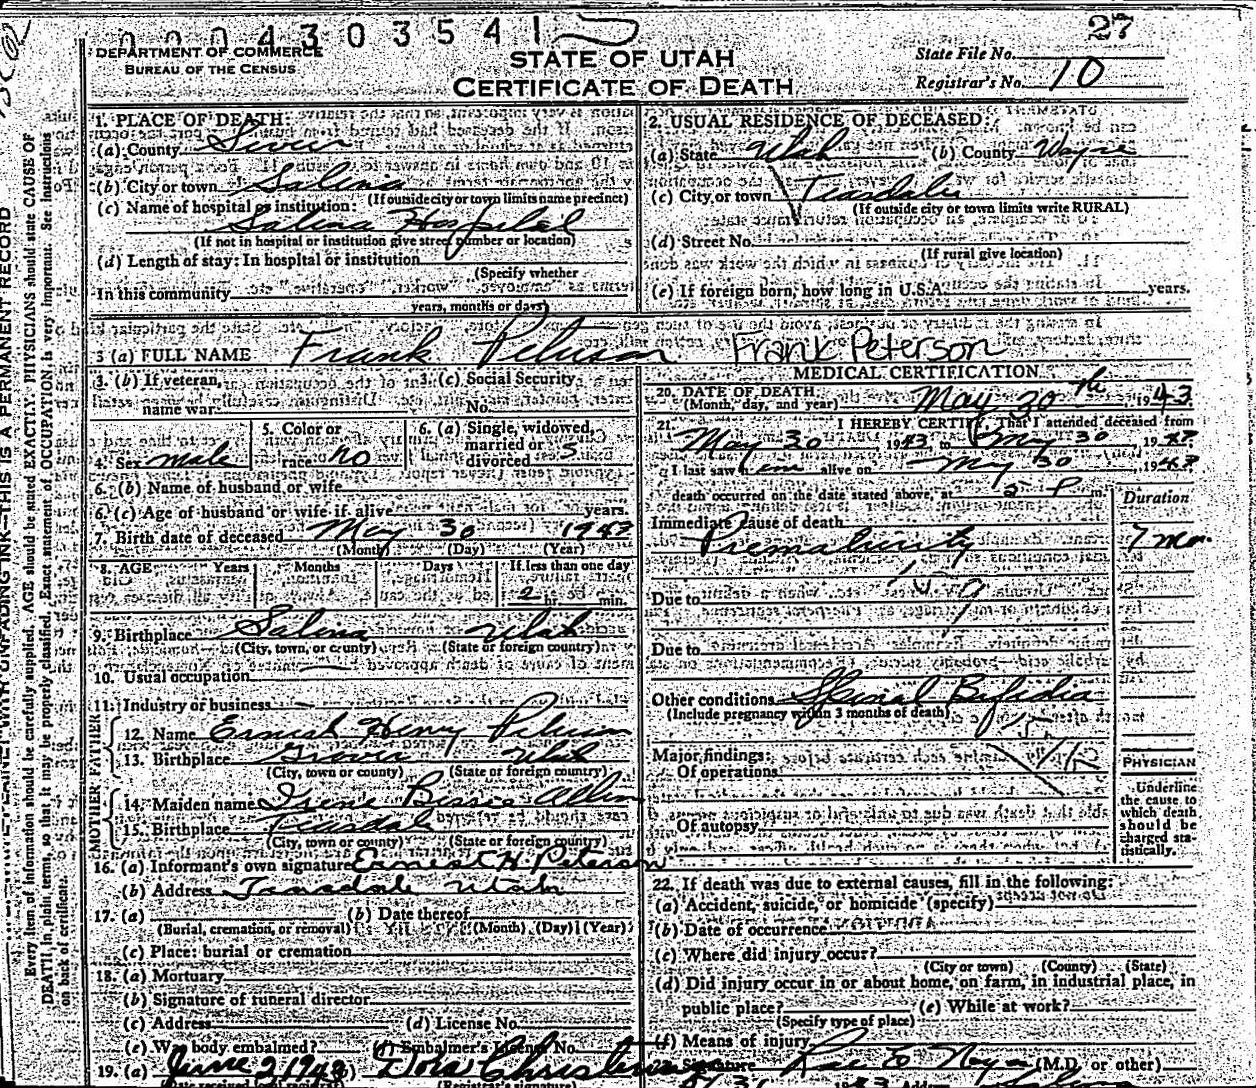 0004303541
27
DEPARTMENT OF COMMERCE
BUREAU OF THE CENSUS
STATE OF UTAH
CERTIFICATE OF DEATH
State File No.
Registrar's No. 10
Every item of information should be carefully supplied. AGE should be stated EXACTLY. PHYSICIANS should state CAUSE OF
DEATH in plain terms, so that it may be properly classified. Exact statement of OCCUPATION is very important. See instructions
on back of certificate.
1. PLACE OF DEATH:
(a) County Sevier
(b) City or town Salina
(If outside city or town limits name precinct)
(c) Name of hospital or institution:
Salina Hospital
(If not in hospital or institution give street number or location)
(d) Length of stay: In hospital or institution
(Specify whether
In this community
years, months or days)
2. USUAL RESIDENCE OF DECEASED:
(a) State Utah (b) County Wayne
(c) City or town Teasdale
(If outside city or town limits write RURAL)
(d) Street No.
(If rural give location)
(e) If foreign born, how long in U.S.A. years.
3 (a) FULL NAME Frank Peterson Frank Peterson
3. (b) If veteran, 3. (c) Social Security
name war No.
4. Sex male 5. Color or race no 6. (a) Single, widowed, married or divorced S
6. (b) Name of husband or wife
6. (c) Age of husband or wife if alive years.
7. Birth date of deceased May 30 1943
(Month) (Day) (Year)
8. AGE Years Months Days If less than one day
2 hr. min.
9. Birthplace Salina Utah
(City, town, or county) (State or foreign country)
10. Usual occupation
11. Industry or business
FATHER
12. Name Ernest Henry Peterson
13. Birthplace Grover Utah
(City, town or county) (State or foreign country)
MOTHER
14. Maiden name Irene Bessie Allen
15. Birthplace Teasdale
(City, town or county) (State or foreign country)
16. (a) Informant's own signature Ernest H. Peterson
(b) Address Teasdale Utah
17. (a) (b) Date thereof
(Burial, cremation, or removal) (Month) (Day) (Year)
(c) Place: burial or cremation
18. (a) Mortuary
(b) Signature of funeral director
(c) Address (d) License No.
(e) Was body embalmed? (f) Embalmer's License No.
19. (a) June 2 1943 Dora Christensen
(Date received local registrar) (Registrar's signature)
MEDICAL CERTIFICATION
20. DATE OF DEATH May 30th 1943
(Month, day, and year)
21. I HEREBY CERTIFY, That I attended deceased from
May 30 1943 to May 30, 1943
I last saw him alive on May 30, 1943
death occurred on the date stated above, at 5 P m.
Duration
Immediate cause of death
Prematurity 7 mo.
Due to
Due to
Other conditions Spinal Byfidia
(Include pregnancy within 3 months of death)
Major findings:
Of operations
Of autopsy
PHYSICIAN
Underline
the cause to
which death
should be
charged sta-
tistically.
22. If death was due to external causes, fill in the following:
(a) Accident, suicide, or homicide (specify)
(b) Date of occurrence
(c) Where did injury occur?
(City or town) (County) (State)
(d) Did injury occur in or about home, on farm, in industrial place, in
public place? (e) While at work?
(Specify type of place)
(f) Means of injury
23. Signature Rae E Noyes (M.D. or other)